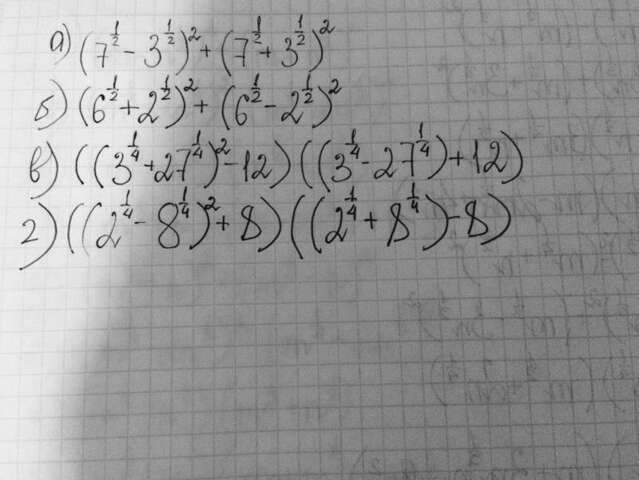 а) (7^{1/2} - 3^{1/2})^2 + (7^{1/2} + 3^{1/2})^2
б) (6^{1/2} + 2^{1/2})^2 + (6^{1/2} - 2^{1/2})^2
в) ((3^{1/4} + 27^{1/4})^2 - 12) ((3^{1/4} - 27^{1/4}) + 12)
г) ((2^{1/4} - 8^{1/4})^2 + 8) ((2^{1/4} + 8^{1/4}) - 8)